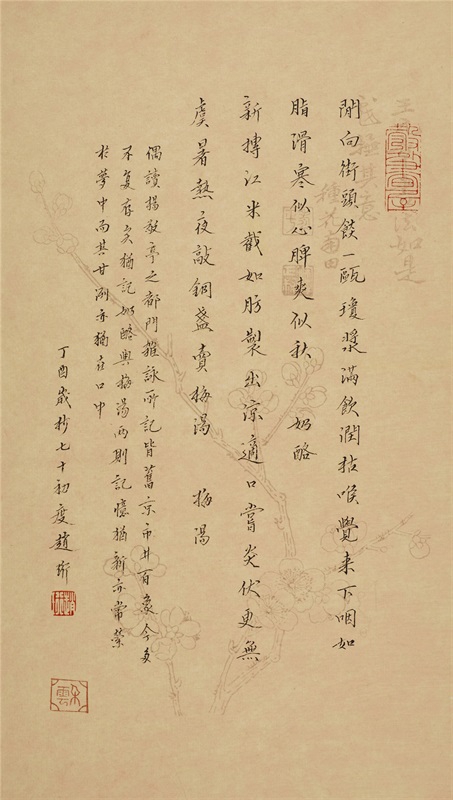 閒向街頭餤一甌瓊漿滿飲潤枯喉覺来下咽如
脂滑寒似心脾爽似秋 奶酪
新摶江米截如肪製出涼適口嘗炎伏更無
虞暑熱夜敲銅盞賣梅湯 梅湯
偶讀楊敬亭之都門雜詠所記皆舊京市井百象今多
不复存矣猶記奶酪與梅湯兩則記憶猶新亦常縈
於夢中而其甘冽亦猶在口中
丁酉歲杪七十初度趙珩